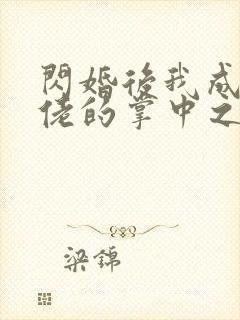 閃婚後我成
佬的掌中之
梁錦